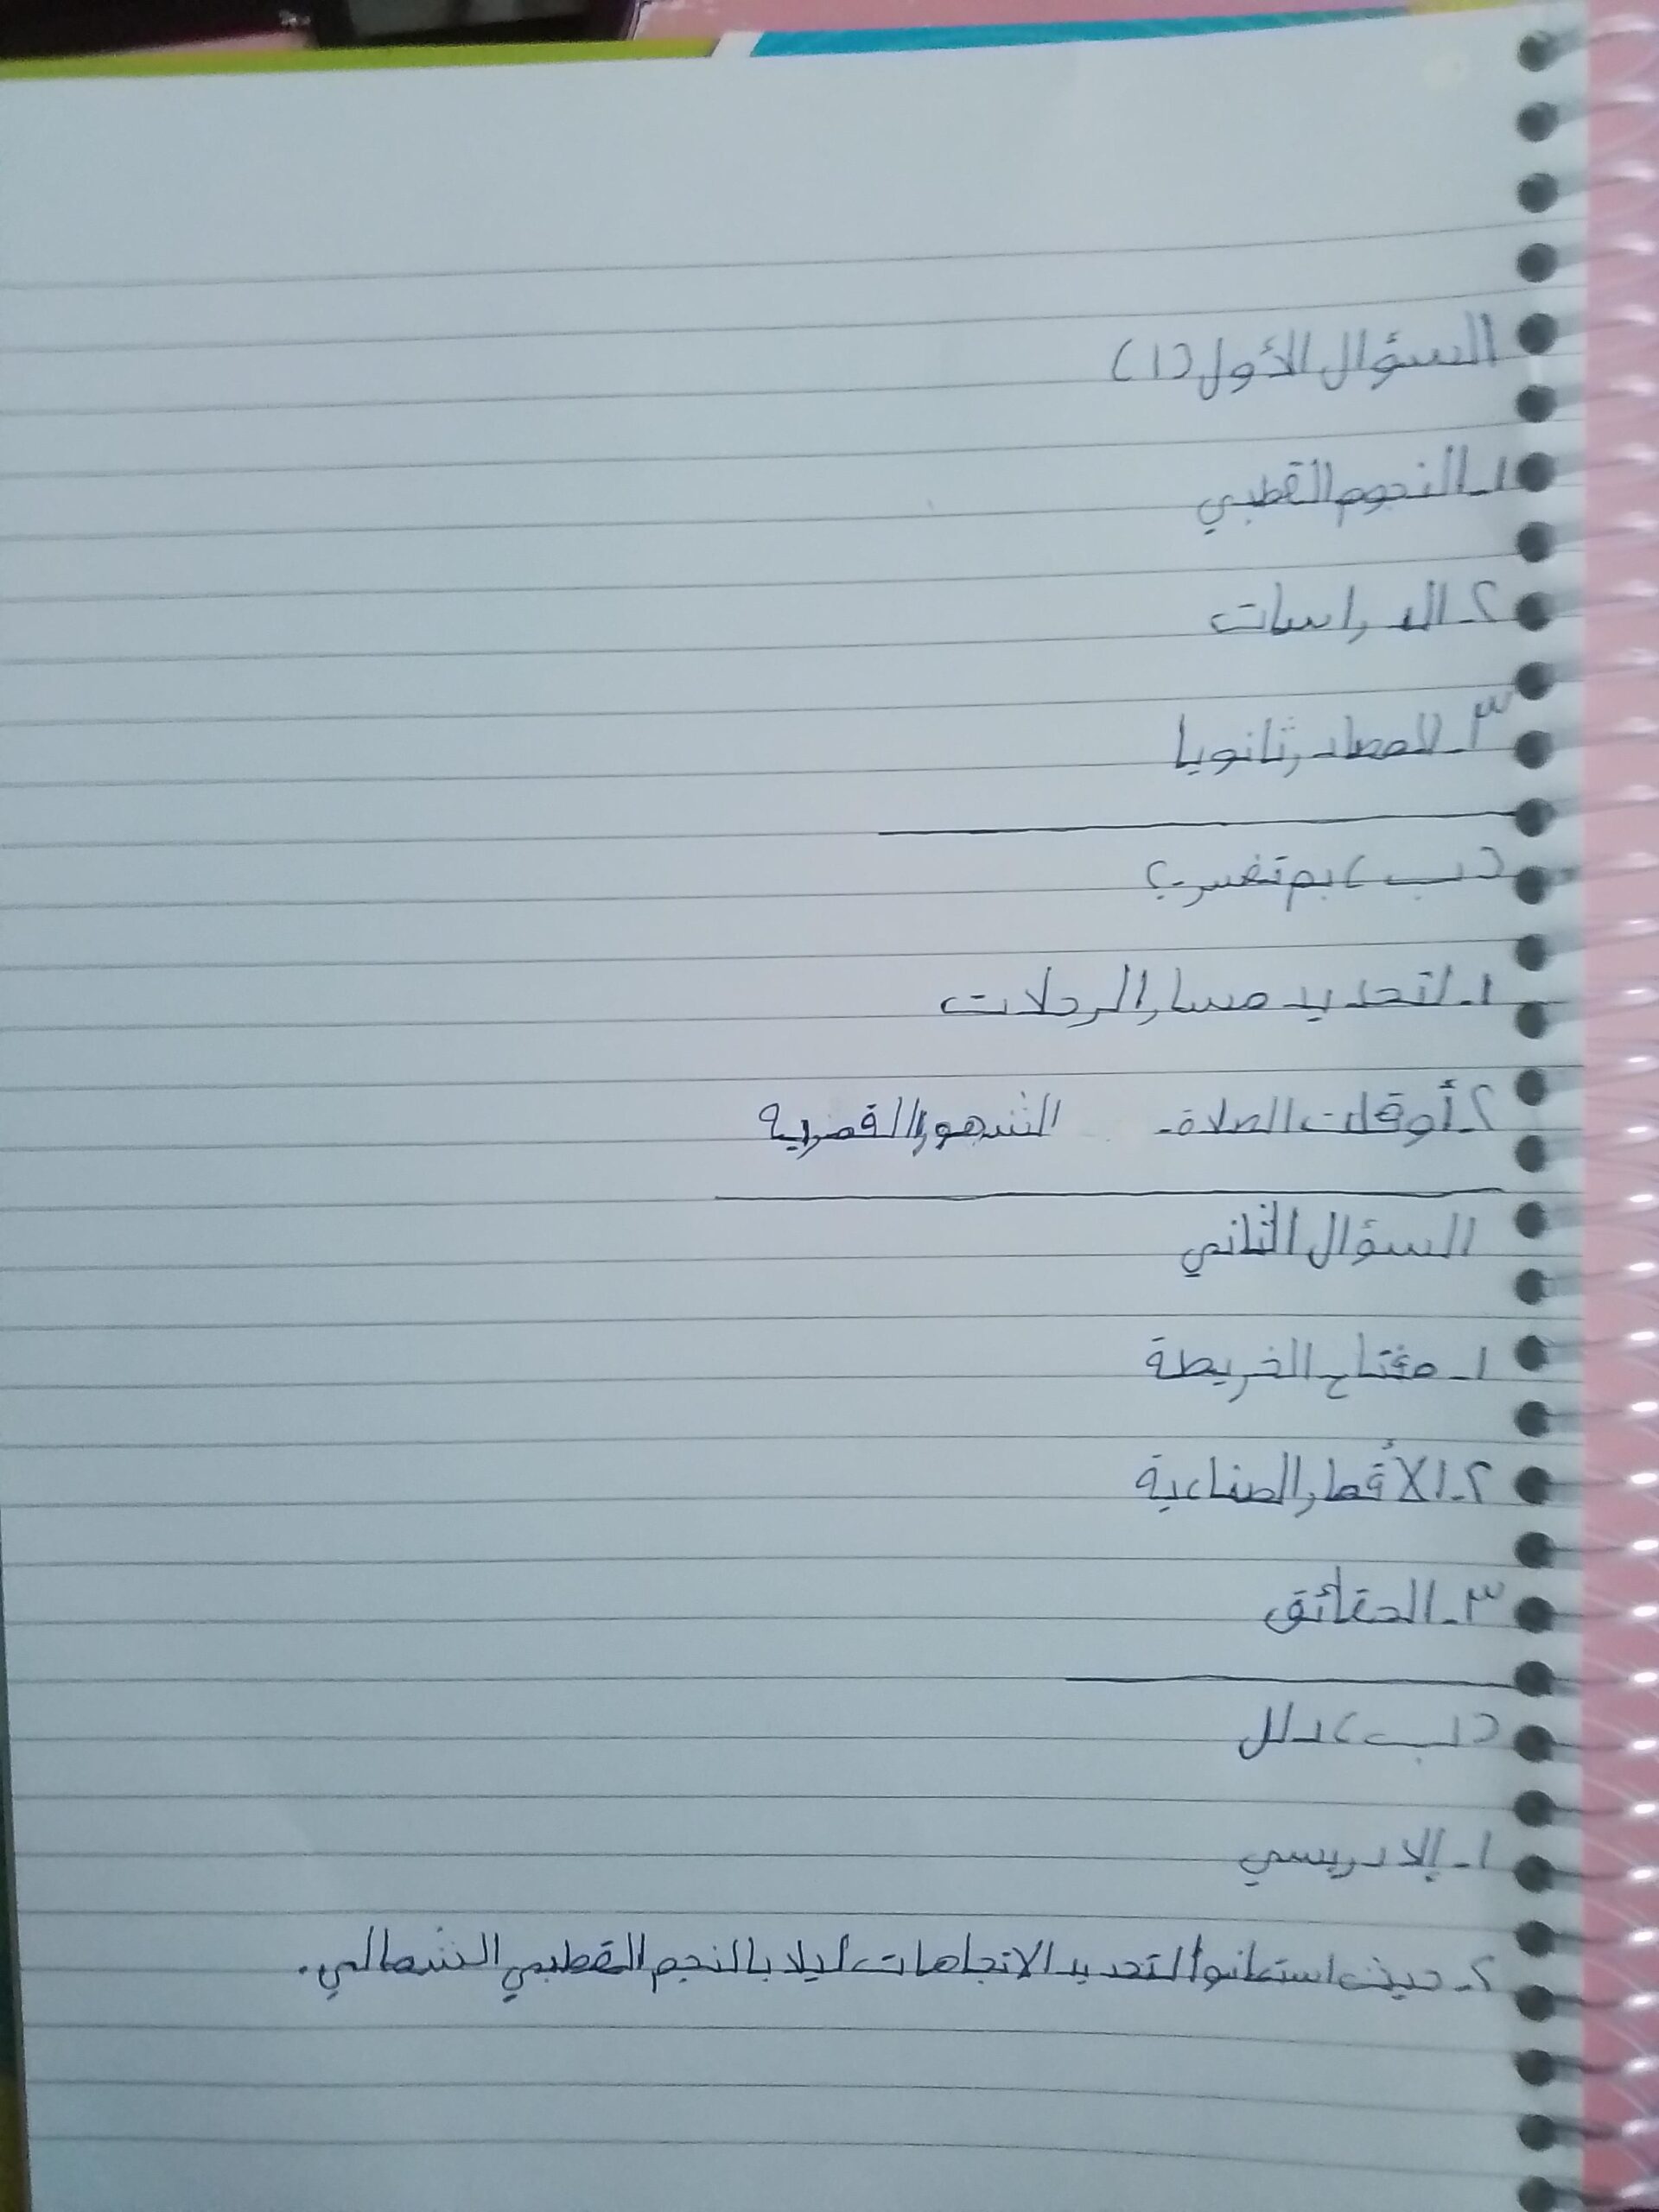 السؤال الأول (١)
١- النجوم القطبي
٢- الدراسات
٣- المصادر ثانويا
(ب) بم تفسر؟
١- لتحديد مسار الرحلات
٢- أوقات الصلاة - الشهور القمرية
السؤال الثاني
١- مفتاح الخريطة
٢- الأقمار الصناعية
٣- الحقائق
(ب) دلل
١- الإدريسي
٢- حيث استعانوا لتحديد الاتجاهات ليلا بالنجم القطبي الشمالي.